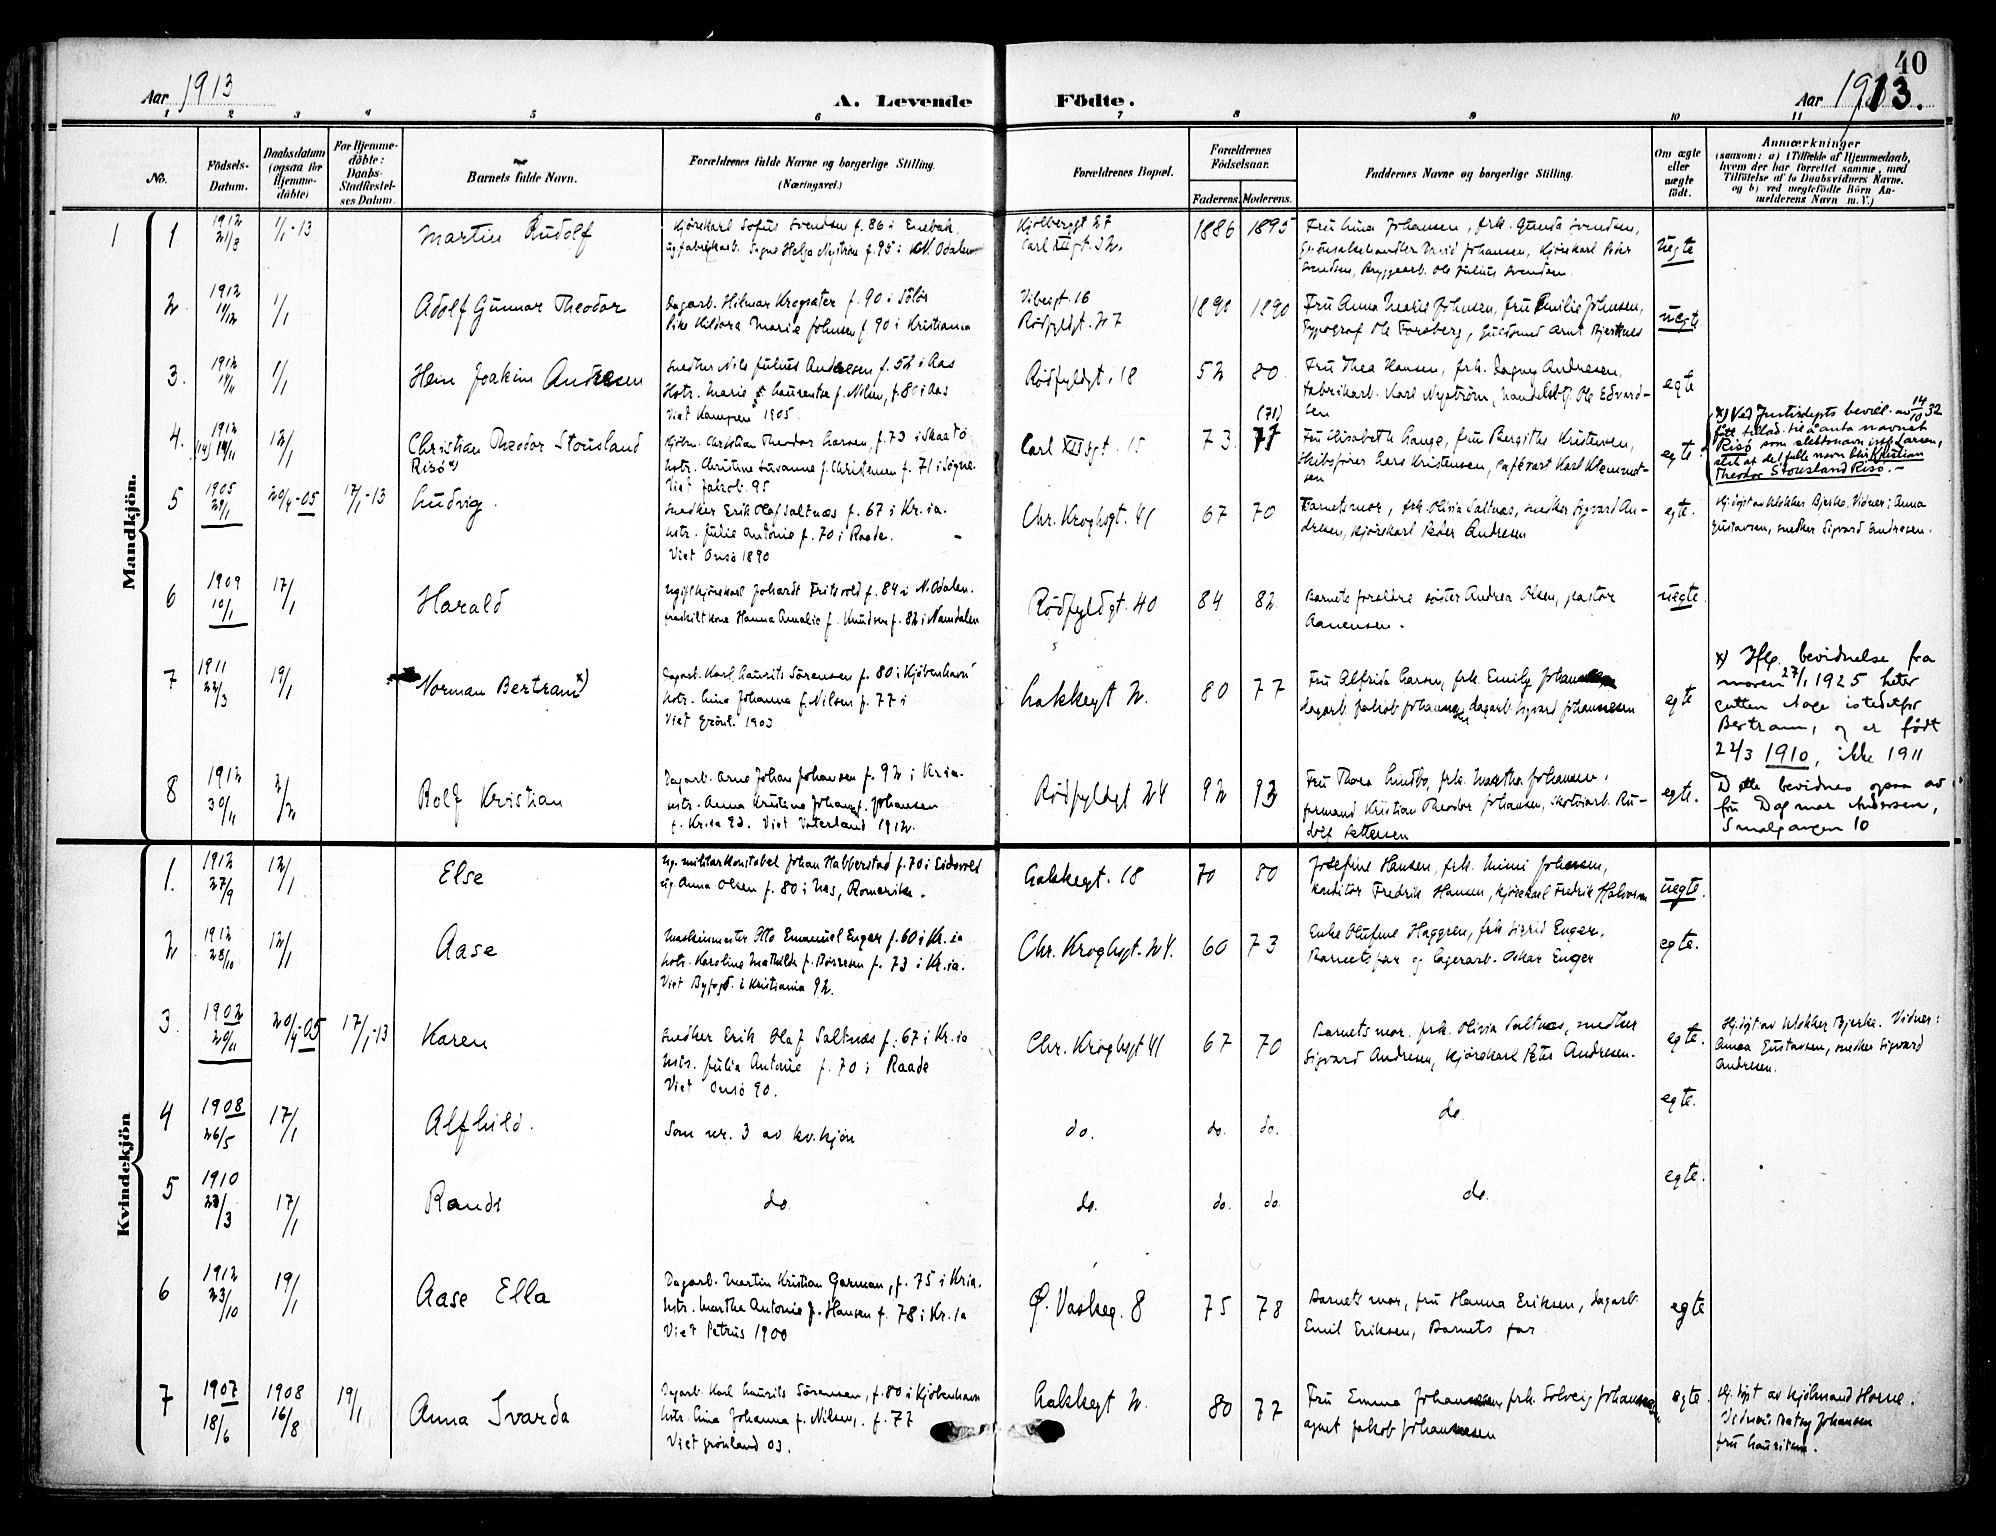 40
Aar 1913
A. Levende
Födte.
Aar 1913.
1 2 3 4 5 6 7 8 9 10 11
No.
Födsels-Datum.
Daabsdatum (ogsaa for Hjemmedöbte)
For Hjemmedöbte: Daabs-Stadfæstelses Datum.
Barnets fulde Navn.
Forældrenes fulde Navne og borgerlige Stilling.
(Næringsvei.)
Forældrenes Bopæl.
Forældrenes Födselsaar.
Faderens. Moderens.
Faddernes Navne og borgerlige Stilling.
Om ægte eller uægte födt.
Anmærkninger
(saasom: a) i Tilfælde af Hjemmedaab, hvem der har forrettet samme, med Tilföielse af to Daabsvidners Navne, og b) ved uegtefödte Börn Anmelderens Navn m. V.)
Mandkjön.
1 1 1912 21/8 1/1-13 Martin Rudolf
Kjörekarl Sofus Svendsen f. 86 i Enebak.
ug. fabrikarb. Signe Helga Nyström f. 95 i N. Odalen
Kjölberggt 27
Carl XIIgt. 32.
1886 1895
Fru Lina Johansen, frk. Gunda Svendsen,
David Johansen, Kjörekarl Peter
Svendsen, Bryggearb. Ole Julius Svendsen.
uegte
2. 1912 1/1 Adolf Gunnar Theodor
Dagarb. Hilmar Krogsäter f. 90 i Solör
Pike Hildora Marie Johnsen f. 90 i Kristiania
Vibesgt. 16
Rödfyldgt. 27
1890 1890
Fru Anna Marie Johnsen, fru Emilie Johnsen,
Typograf Ole Forsberg, Guldsmed Arnt Bjerknes
uegte
3. 1912 14/11 1/1 Hein Joakim Andresen
Smed Nils Julius Andresen f. 52 i Aas
Hstr. Marie Laurentse f. Nilsen, f. 80 i Aas
Viet Kampen 1905.
Rödfyldgt. 18
52 80
Fru Thea Hansen, frk. Dagny Andresen,
fabrikarb. Karl Nyström, handelsbtj. Ole Edvard-
sen
egte
4. 1912 (14) 19/11 12/1 Christian Theodor Stousland
Risö x)
Christian Theodor Larsen, f. 73 i Skaatö
hstr. Christine Susanne f. Christensen f. 71 i Sögne.
Viet Jakob. 95
Carl XIIgt. 15
73. (71) 77
Fru Elisabeth Lange, fru Bergithe Kristensen,
Skibsförer Lars Kristensen, cafévert Karl Klemmet-
sen
egte
x) Ved Justisdepts bevill. av 14/10 32
fått tillad. til å anta navnet
Risö som slektsnavn istf. Larsen,
slik at det fulle navn blir Kristian
Theodor Stousland Risö. -
5 1905 29/1 20/4-05 17/1-13 Ludvig.
Snedker Erik Olaf Saltnæs f. 67 i Kr.ia.
hstr. Julie Antonie f. 70 i Raade.
Viet Onsö 1890
Chr. Kroghsgt. 41
67 70
Barnets mor, frk. Olivia Saltnæs, snedker Sigvard An-
dresen, kjörekarl Peter Andresen
egte.
Hj. döpt av klokker Bjerke. Vidner: Anna
Gustavsen, snedker Sigvard Andresen.
6 1909 10/1 17/1 Harald
Ugift kjörekarl Johardt Fritsvold f. 84 i N. Odalen.
fraskilt kone Hanna Amalie f. Knudsen f. 82 i Namdalen
Rödfyldgt. 40
84 82
Barnets forældre söster Andrea Olsen, pastor
Aanensen.
uegte.
7 1911 22/3 19/1 Norman Bertram x)
Dagarb. Karl Laurits Sörensen f. 80 i Kjöbenhavn
hstr. Lina Johanna f. Nilsen f. 77 i
Viet Grönl. 1903
Lakkegt 2.
80 77
Fru Alfrida Larsen, frk. Emily Johannesen
dagarb. Jakob Johannesen, dagarb. Sigvard Johannesen
egte
x) Iflg. bevidnelse fra
moren 27/1 1925 heter
gutten Aage istedetfor
Bertram, og er född
22/3 1910, ikke 1911
Dette bevidnes ogsaa av
fru Dagmar Andersen,
Smalgangen 10
8 1912 30/11 2/2 Rolf Kristian
Dagarb. Arne Johan Johansen f. 92 i Kria.
hstr. Anna Kristine f. Johansen
f. Kr.ia 93. Viet Vaterland 1912.
Rödfyldgt 24
92 93
Fru Thora Lindbo, frk. Martha Johansen,
formand Kristian Theodor Johansen, skotöiarb. Ru-
dolf Pettersen
egte.
Kvindekjön
1. 1912 27/9 12/1 Else
Ug. militærkonstabel Johan Habberstad f. 70 i Eidsvold
ug. Anna Olsen f. 80 i Nes, Romerike.
Lakkegt. 18
70 80
Josefine Hansen, frk. Mimi Johansen,
konditor Fredrik Hansen, kjörekarl Fredrik Halvorsen
uegte.
2 1912 28/10 12/1 Aase
Maskinmester Otto Emanuel Enger f. 60 i Kr.ia
hstr. Karoline Mathilde f. Börresen f. 73 i Kr.ia.
Viet Byfogd. i Kristiania 92.
Chr. Kroghsgt. 24.
60 73
Enke Olufine Haggren, frk. Sigrid Enger,
Barnets far og lagerarb. Oskar Enger
egte.
3. 1902 20/11 20/4-05 17/1-13 Karen
Snedker Erik Olaf Saltnæs f. 67 i Kr.ia
hstr. Julia Antonie f. 70 i Raade
Viet Onsö 90.
Chr. Kroghsgt 41
67 70
Barnets mor. frk. Olivia Saltnæs, snedker
Sigvard Andresen, kjörekarl Peter Andresen.
egte.
Hj. döpt av klokker Bjerke. Vidner:
Anna Gustavsen, snedker Sigvard
Andresen.
4 1908 26/5 17/1 Alfhild.
Som nr. 3 av kv. kjön
do. do. do. do.
egte.
5 1910 23/3 17/1 Randi
do. do. do. do. do.
egte.
6 1912 23/10 19/1 Aase Ella
Dagarb. Martin Kristian Garman, f. 75 i Kria.
hstr. Martha Antonie f. Hansen f. 78 i Kr.ia
Viet Petrus 1900
Ø. Vaskeg. 8
75 78
Barnets mor, fru Hanna Eriksen, dagarb.
Emil Eriksen, Barnets far.
egte
7 1907 18/6 1908 16/8 19/1 Anna Svarda
Dagarb. Karl Laurits Sörensen, f. 80 i Kjöbenhavn
hstr. Lina Johanna f. Nilsen, f. 77
Viet Grönland 03.
Lakkegt 2.
80 77
Fru Emma Johannesen, frk. Solveig Johannesen
agent Jakob Johannesen
egte.
Hj. döpt av Hörne.
Vidner: Betsy Johansen
fru Lauritsen.